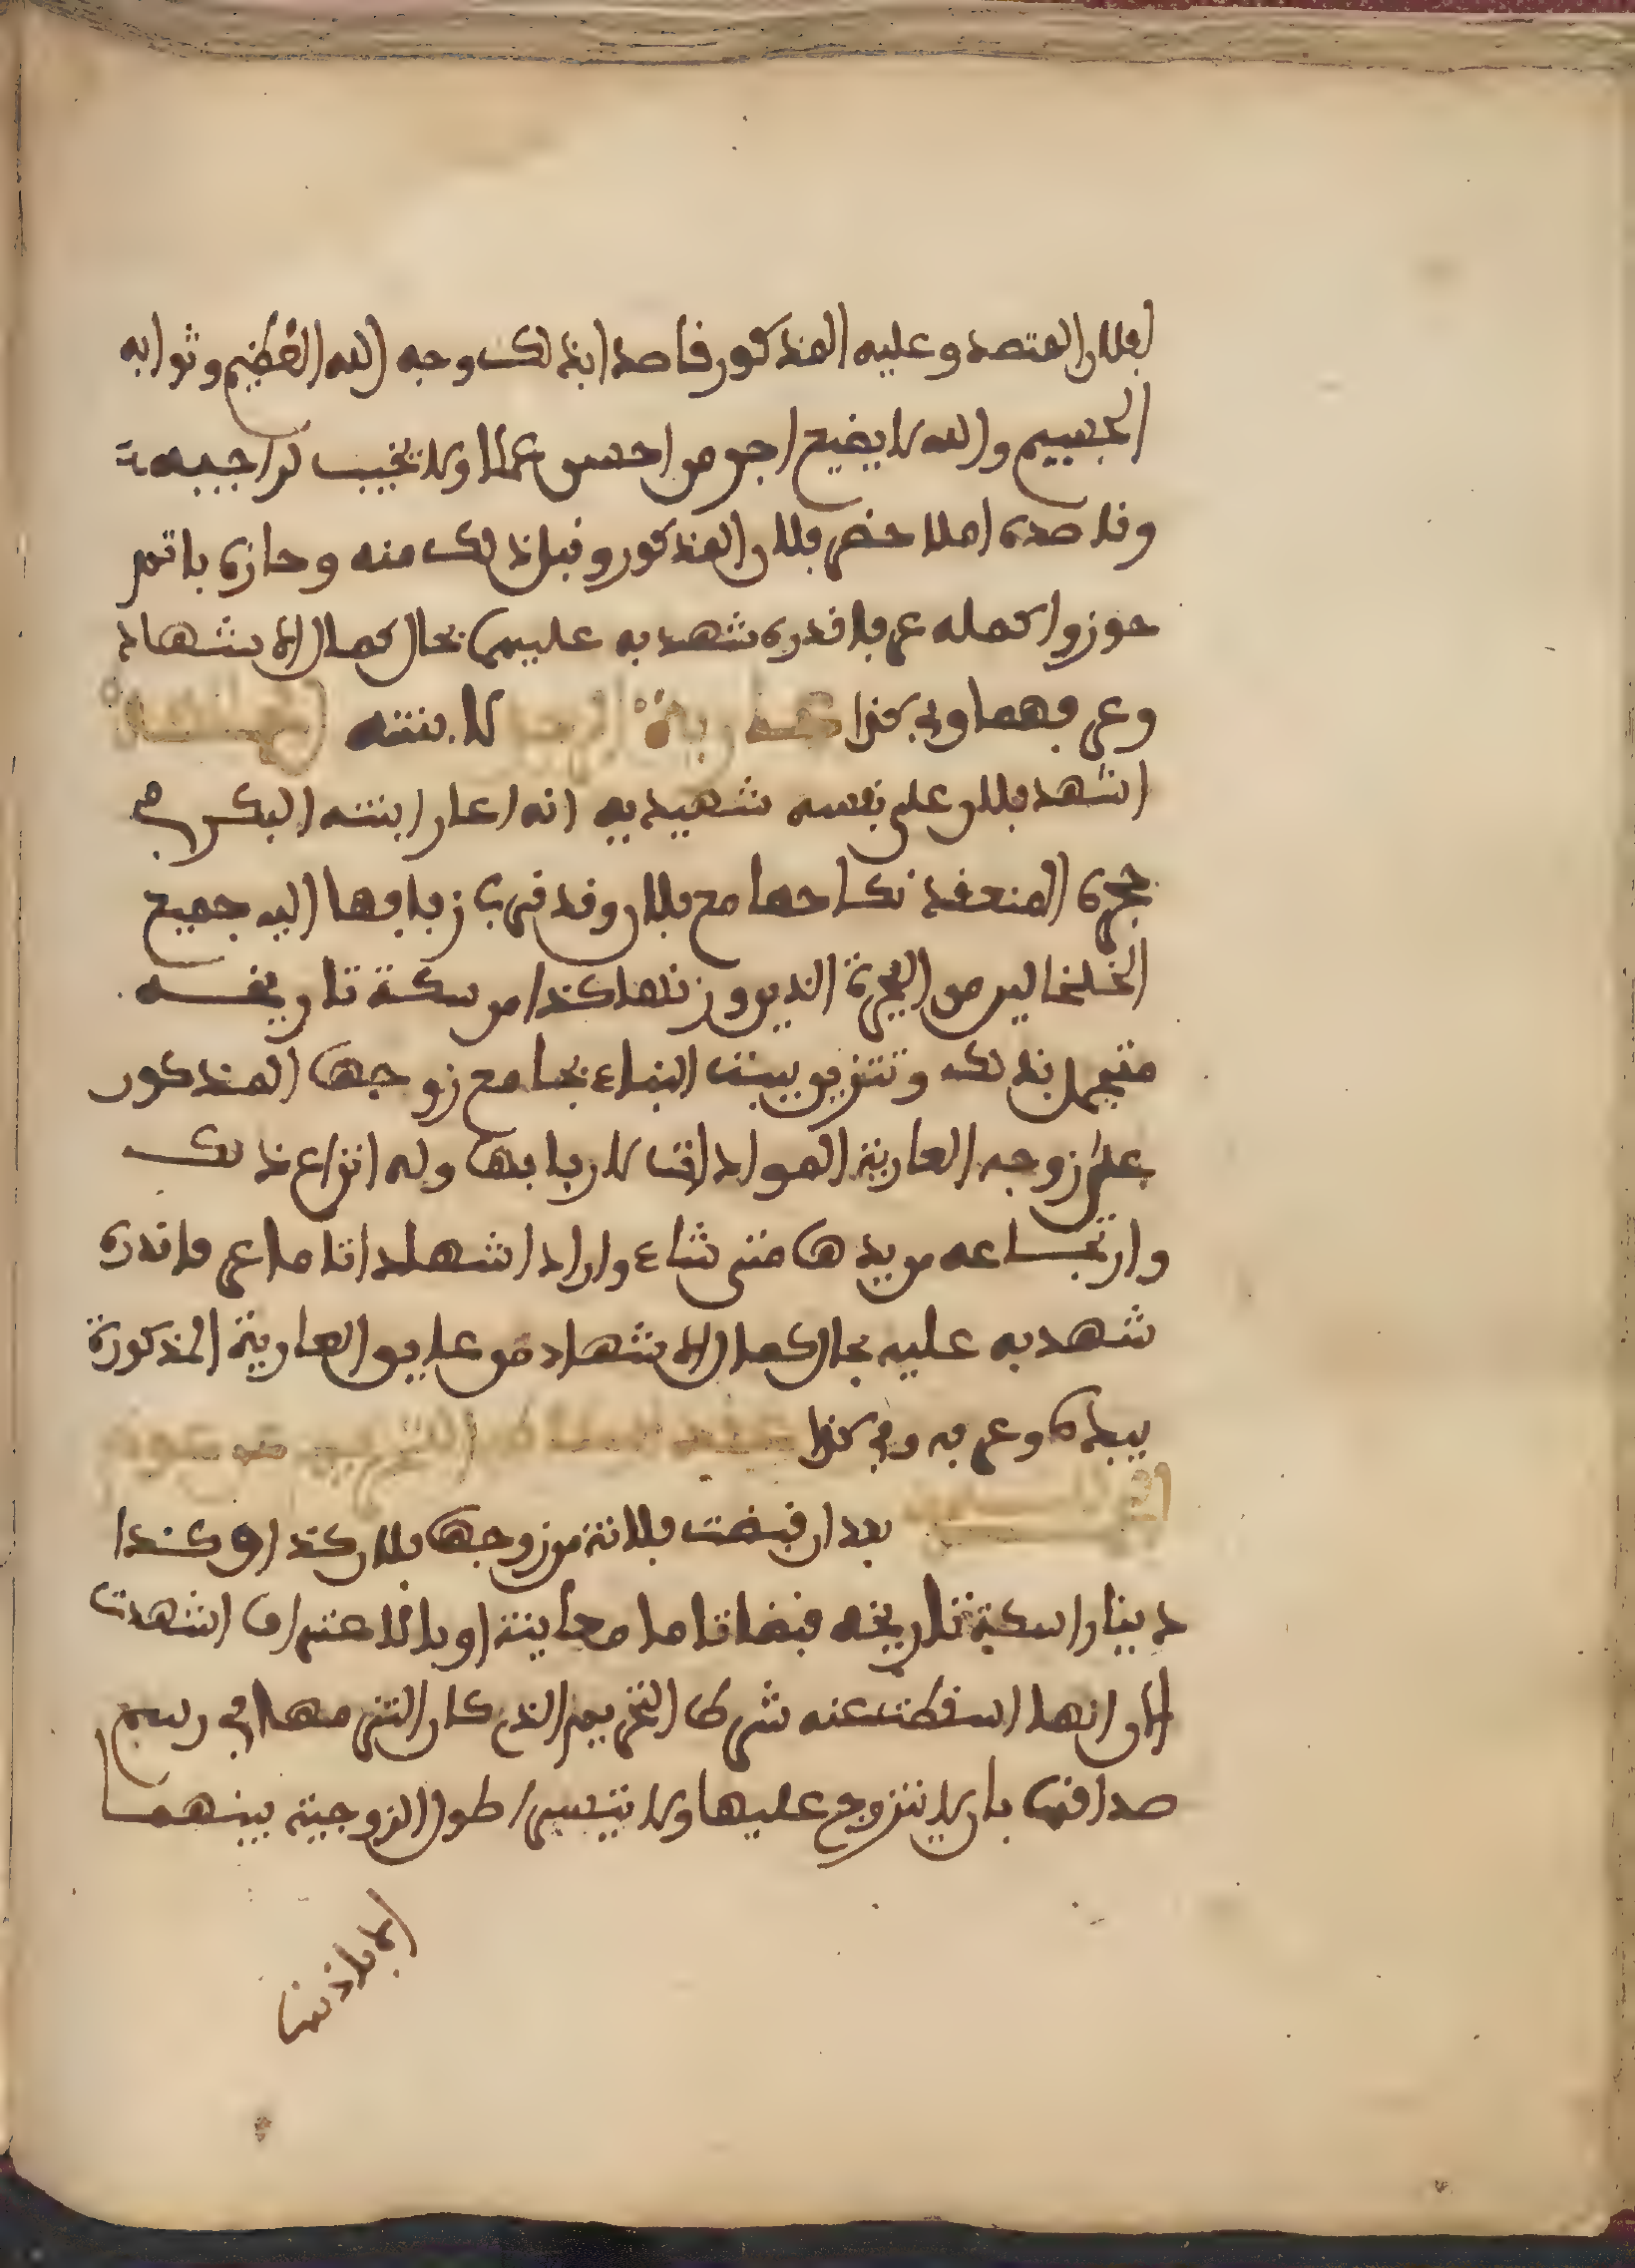 لفلان المتصدق عليه المذكور قاصدا بذلك وجه الله العظيم وثوابه
الجسيم والله لا يضيع اجر من احسن عملا ولا يخيب لراجيه
وقاصده املا حضر فلان المذكور وقبل ذلك منه وحازه باتم
حوز واكمله عرفا قدره شهد به عليهما بحال كمال الاشهاد
وعرفهما وفي كذا عارية الرجل لابنته
اشهد فلان على نفسه شهيديه انه اعار ابنته البكر في
حجره المنعقد نكاحها مع فلان وقد قرب زفافها اليه جميع
الخلخالين من الفضة الذين وزنهما كذا من سكة تاريخه
لتتجمل بذلك وتتزين ببيت البناء بها مع زوجها المذكور
على وجه العارية المواداة لاربابها وله انتزاع ذلك
وارتجاعه من يدها متى شاء واراد اشهادا تاما عرفا قدره
شهد به عليه بحال كمال الاشهاد من عاين العارية المذكورة
بيده وعرفه وفي كذا عقد اسقاط التحريم بعوض
بعد ان قبضت فلانة من زوجها فلان كذا وكذا
دينارا سكة تاريخه قبضا تاما معاينة او بالاعتراف اشهدت
الان انها اسقطت عنه شرط التحريم الذي كان التزمه لها في رسم
صداقها بان لا يتزوج عليها ولا يتسرى طول الزوجية بينهما
الا باذنها